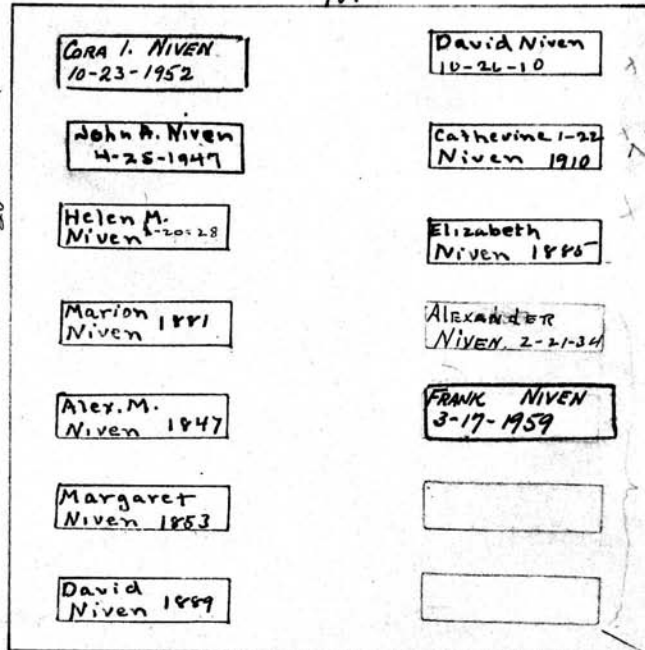 CORA I. NIVEN
10-23-1952
John A. Niven
4-25-1947
Helen M.
Niven 2-20-28
Marion
Niven 1881
Alex. M.
Niven 1847
Margaret
Niven 1853
David
Niven 1889
David Niven
10-26-10
Catherine 1-22
Niven 1910
Elizabeth
Niven 1885
ALEXANDER
NIVEN. 2-21-34
FRANK NIVEN
3-17-1959